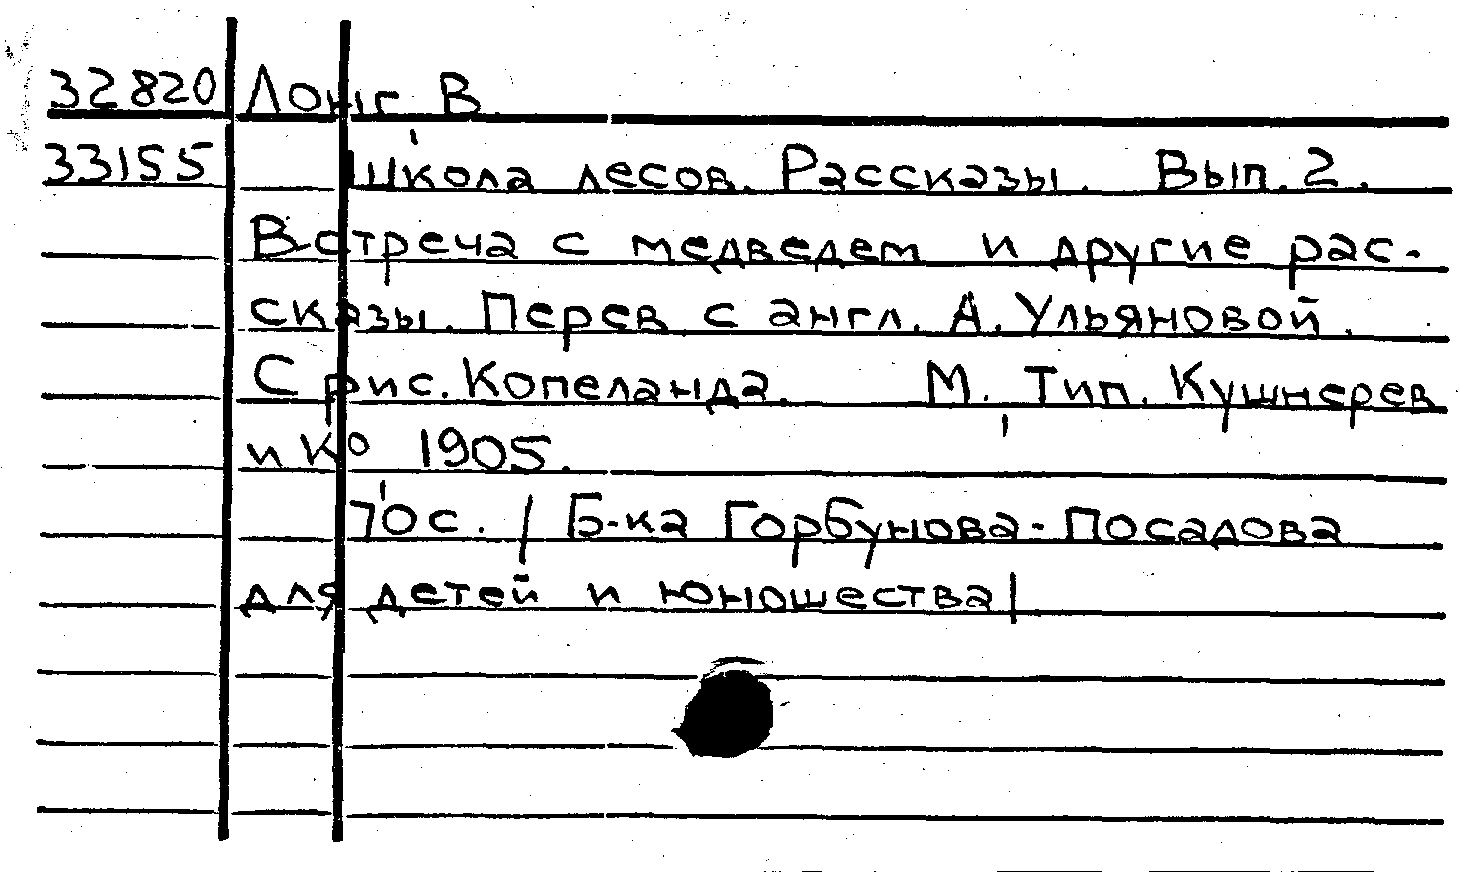 32820 Лонг В.
33155 Школа лесов. Рассказы. Вып. 2.
Встреча с медведем и другие рас-
сказы. Перев. с англ. А. Ульяновой.
С рис. Копеланда. М. Тип. Кушнерев
и Ко 1905.
70с. / Б-ка Горбунова-Посадова
для детей и юношества/